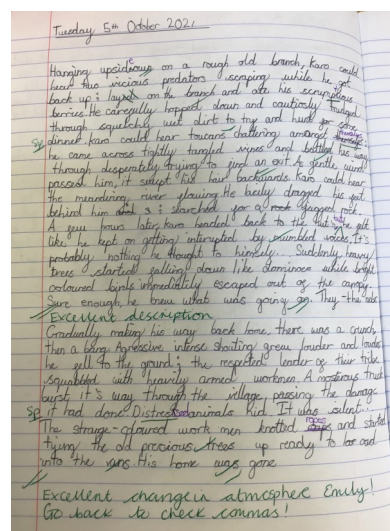 Tuesday 5th October 2021
Hanging upsidedown on a rough old branch, Karo could
hear two vicious predators scraping while he got
back up: layed on the branch and ate his scrumptious
berries. He carefully hopped down and cautiously trudged
through squelchy wet dirt to try and hunt for some
Sp dinner. Karo could hear toucans chattering amongst themselves
he came across tightly tangled vines and battled his way
through desperately trying to find an exit. A gentle wind
passed him, it swept his hair backwards. Karo could hear
the meandering river flowing. He lazily dragged his feet
behind him and searched for a jagged rock.
A few hours later, Karo headed back to the hut but he felt
like he kept on getting interupted by mumbled voices. It's
probably nothing he thought to himself... Suddenly, heavy
trees started falling down like dominoes while bright
coloured birds immediately escaped out of the canopy.
Sure enough, he knew what was going on. They - the
Excellent description
Gradually making his way back home, there was a crunch,
then a bang. Agressive intense shouting grew louder and louder
he fell to the ground; the respected leader of their tribe
squabbled with heavily armed workmen. A monstrous truck
burst it's way through the village, passing the damage
Sp it had done. Distressed animals hid. It was silent...
The strange-coloured work men knotted ropes and started
tying the old precious trees up ready to load
into the vans. His home was gone
Excellent change in atmosphere Emily!
Go back to check commas!